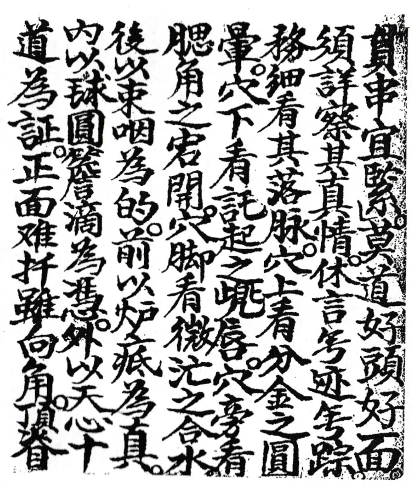 貫串宜緊。莫道好頭好面。
須詳察其真情。休言无迹无踪。
務細看其落脉。穴上看分金之圓
暈。穴下看託起之唇。穴旁看
腮角之宕開。穴脚看微茫之合水
後以束咽為的。前以炉底為真。
内以球圓簷滴為憑。外以天心十
道為証。正面难扦雖向角。頂脊